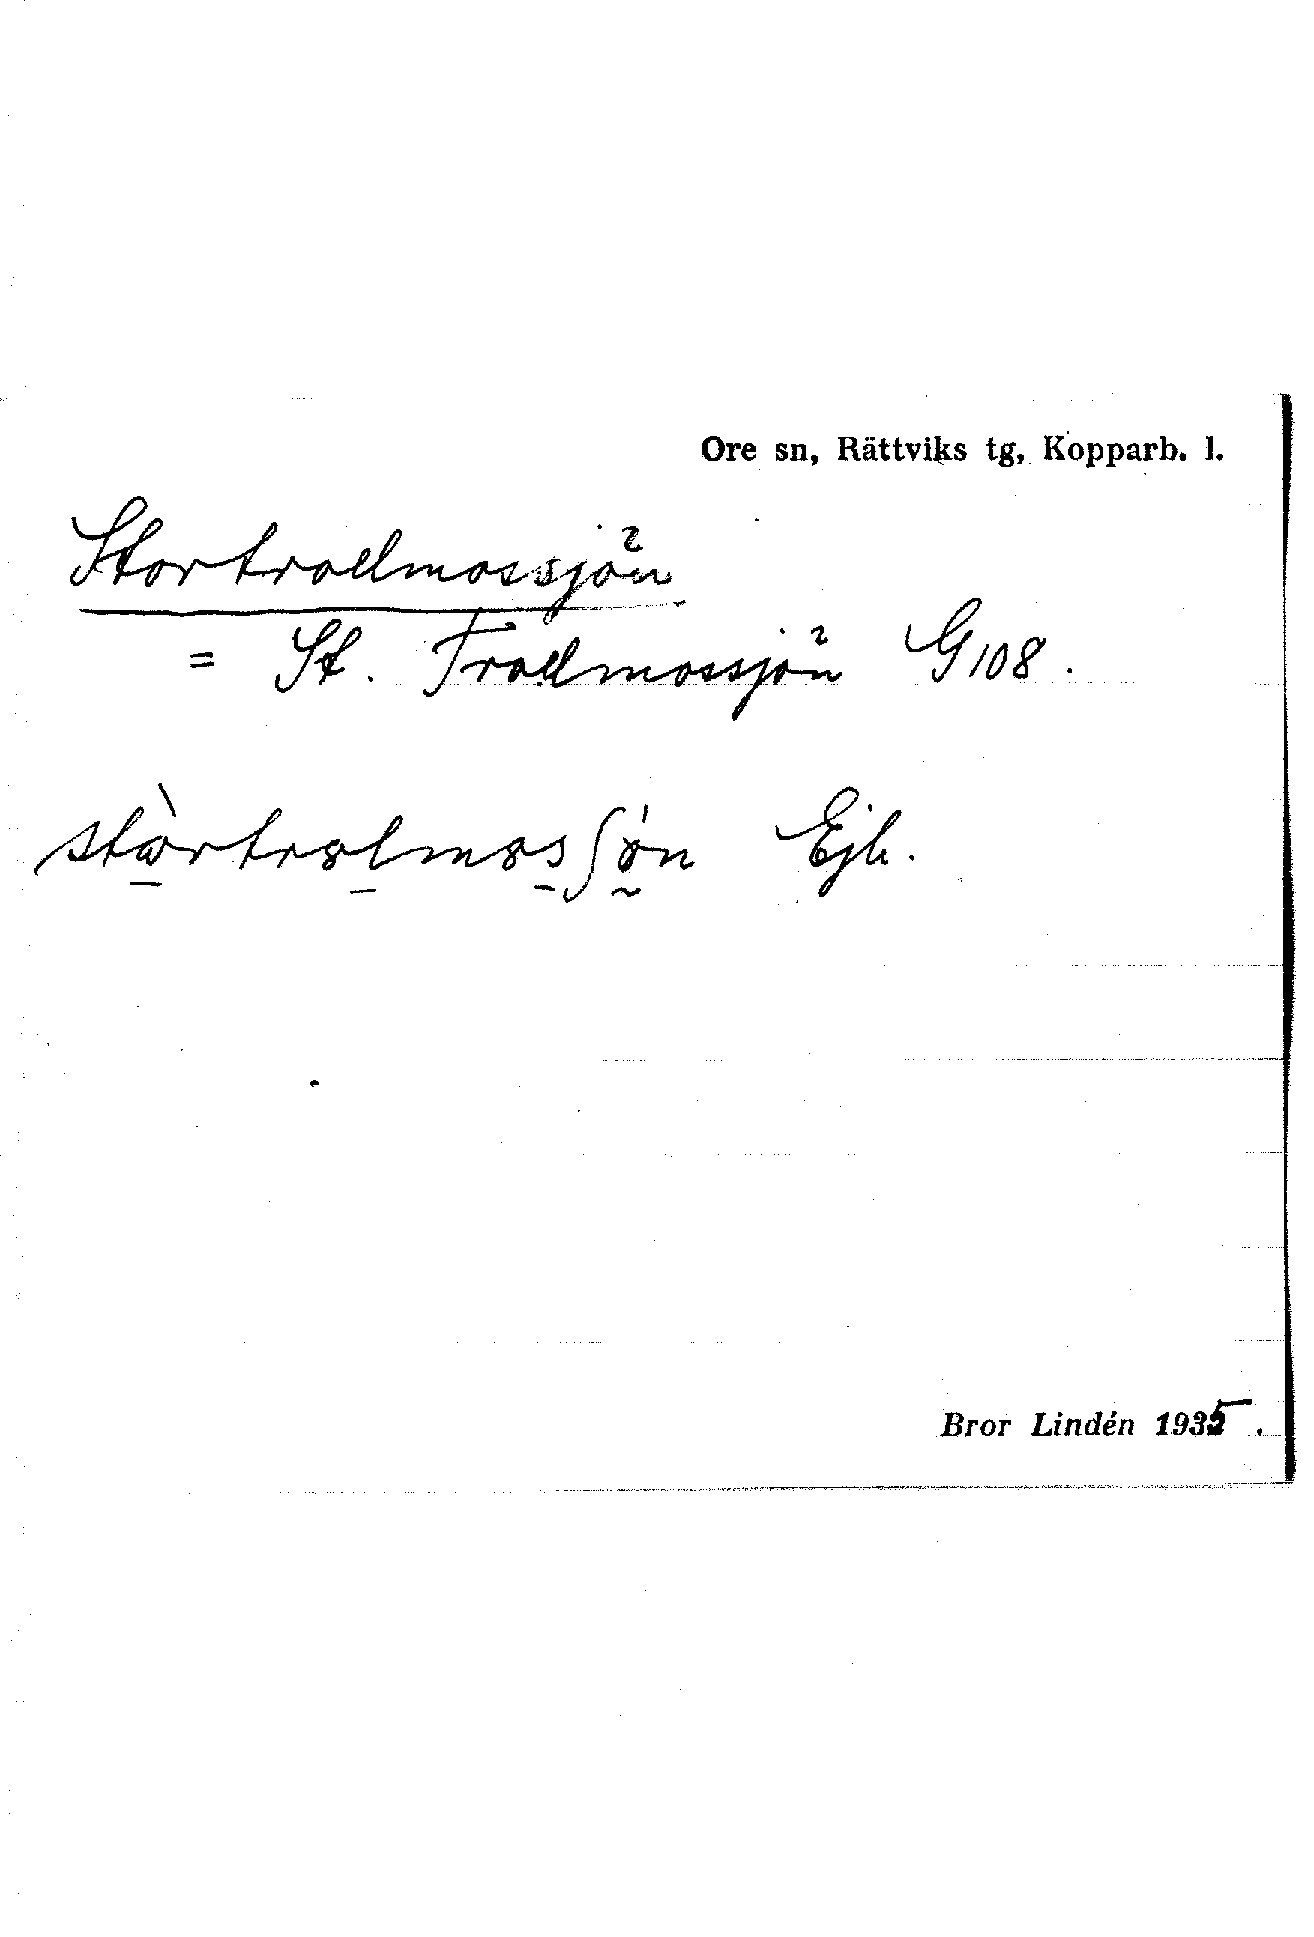 Ore sn, Rättviks tg, Kopparb. l.
Stortrollmossjön
= St. Trollmossjön G108.
Ejh.
Bror Lindén 1935.